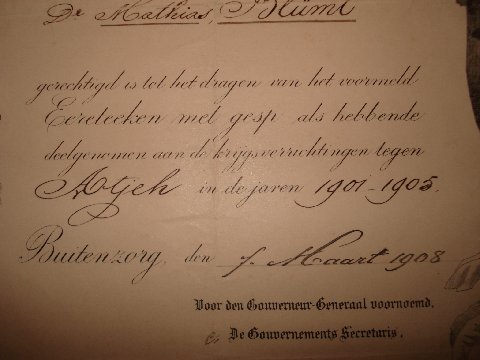 Dr Mathias, Blüml
gerechtigd is tot het dragen van het voormeld
Eereteeken met gesp als hebbende
deelgenomen aan de krijgsverrichtingen tegen
Atjeh in de jaren 1901-1905.
Buitenzorg, den 7. Maart 1908
Voor den Gouverneur-Generaal voornoemd,
De Gouvernements Secretaris,